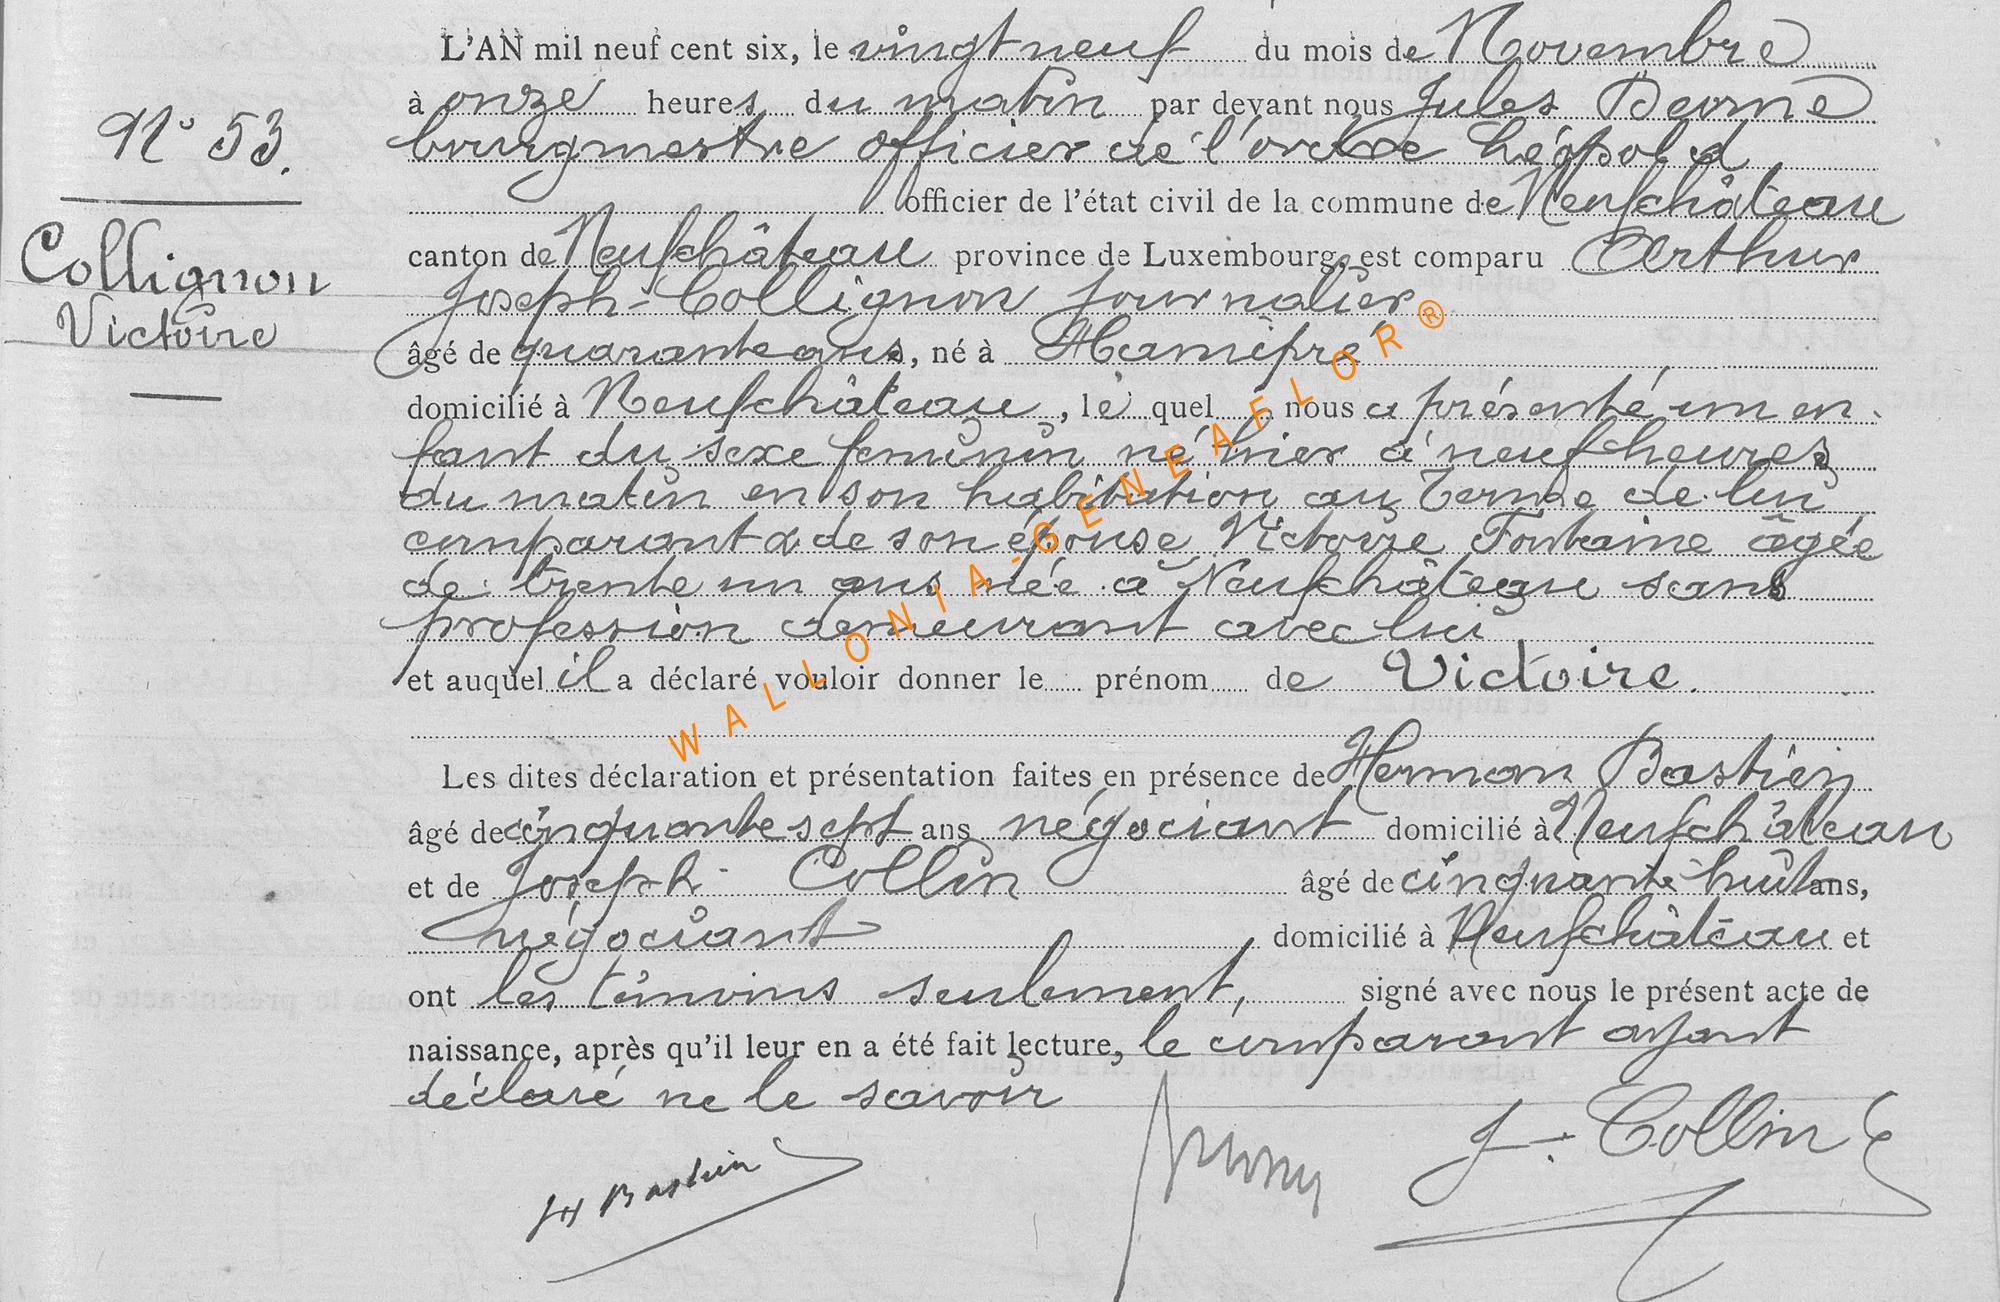 N° 53.
Collignon
Victoire
L'AN mil neuf cent six, le vingt neuf du mois de Novembre
à onze heures du matin par devant nous Jules
bourgmestre officier de l'ordre Léopold
officier de l'état civil de la commune de Neufchâteau
canton de Neufchâteau province de Luxembourg, est comparu Arthur
Joseph Collignon journalier
âgé de quarante ans, né à Hamipré
domicilié à Neufchâteau, le quel nous a présenté un en-
fant du sexe feminin né hier à neuf heures
du matin en son habitation au Terme de lui
comparant & de son épouse Victoire Fontaine âgée
de trente un ans née à Neufchâteau sans
profession demeurant avec lui
et auquel il a déclaré vouloir donner le prénom de Victoire.
Les dites déclaration et présentation faites en présence de Herman Bastien
âgé de cinquante sept ans négociant domicilié à Neufchâteau
et de Joseph Collin âgé de cinquante huit ans,
négociant domicilié à Neufchâteau et
ont les témoins seulement, signé avec nous le présent acte de
naissance, après qu'il leur en a été fait lecture, le comparant ayant
déclaré ne le savoir
Bastien
J. Collin
WALLONIA-GENEAFLOR®